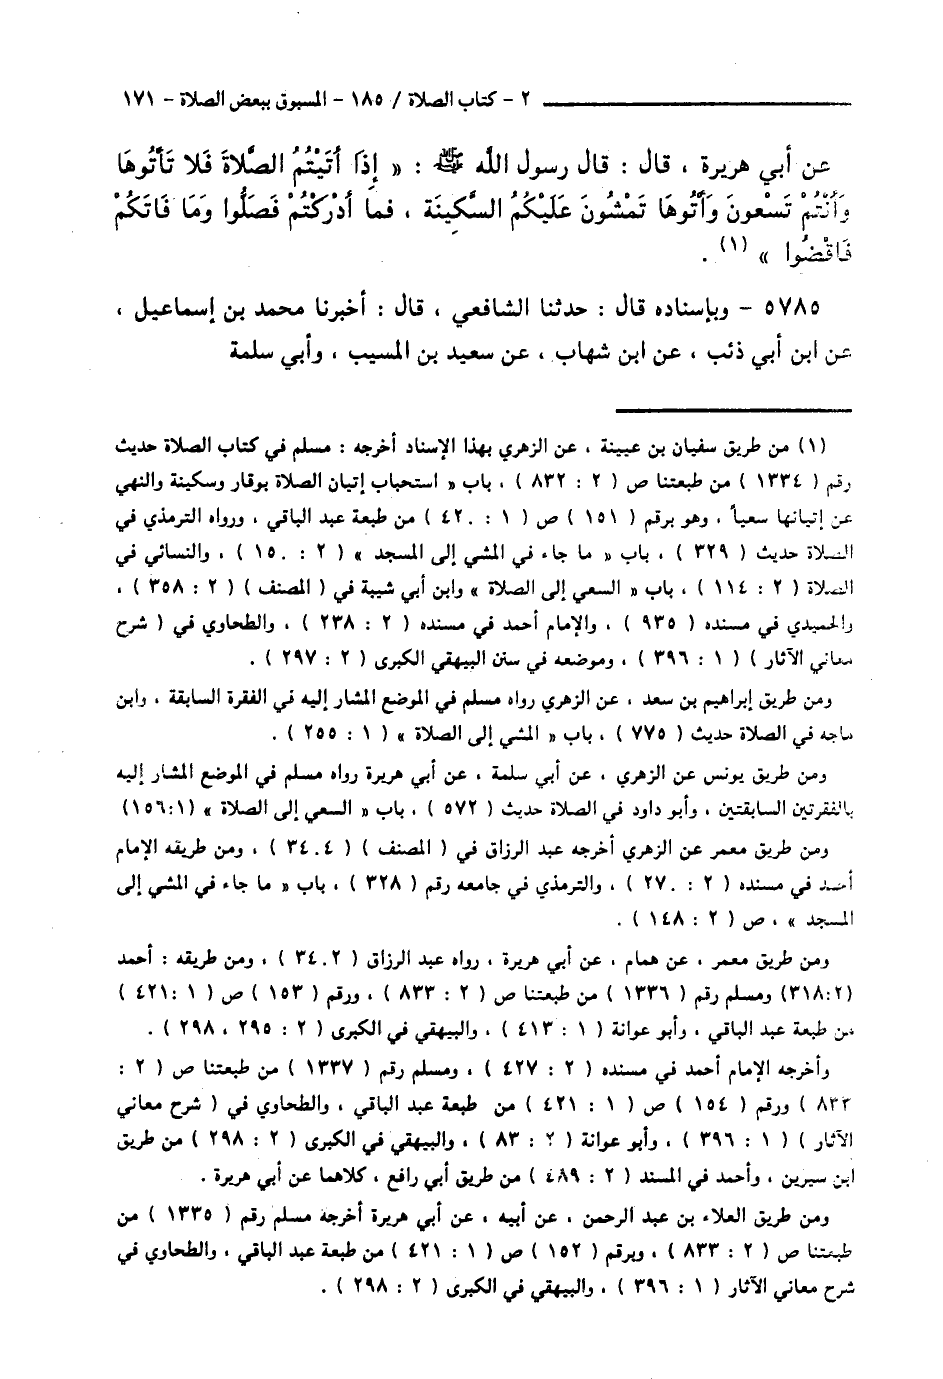 ٢ - كتاب الصلاة / ١٨٥ - المسبوق ببعض الصلاة - ١٧١
عن أبي هريرة ، قال : قال رسول الله ﷺ : « إِذَا أَتَيْتُمُ الصَّلاةَ فَلا تَأْتُوهَا
وَأَنْتُمْ تَسْعونَ وَأْتُوهَا تَمْشُونَ عَلَيْكُمُ السَّكِينَة ، فما أَدْرَكْتُمْ فَصَلُّوا وَمَا فَاتَكُمْ
فَاقْضُوا » (١) .
٥٧٨٥ - وبإسناده قال : حدثنا الشافعي ، قال : أخبرنا محمد بن إسماعيل ،
عن ابن أبي ذئب ، عن ابن شهاب ، عن سعيد بن المسيب ، وأبي سلمة
(١) من طريق سفيان بن عيينة ، عن الزهري بهذا الإسناد أخرجه : مسلم في كتاب الصلاة حديث
رقم ( ١٣٣٤ ) من طبعتنا ص ( ٢ : ٨٣٢ ) ، باب « استحباب إتيان الصلاة بوقار وسكينة والنهي
عن إتيانها سعياً ، وهو برقم ( ١٥١ ) ص ( ١ : ٤٢٠ ) من طبعة عبد الباقي ، ورواه الترمذي في
الصلاة حديث ( ٣٢٩ ) ، باب « ما جاء في المشي إلى المسجد » ( ٢ : ١٥٠ ) ، والنسائي في
الصلاة ( ٢ : ١١٤ ) ، باب « السعي إلى الصلاة » وابن أبي شيبة في ( المصنف ) ( ٢ : ٣٥٨ ) ،
والحميدي في مسنده ( ٩٣٥ ) ، والإمام أحمد في مسنده ( ٢ : ٢٣٨ ) ، والطحاوي في ( شرح
معاني الآثار ) ( ١ : ٣٩٦ ) ، وموضعه في سنن البيهقي الكبرى ( ٢ : ٢٩٧ ) .
ومن طريق إبراهيم بن سعد ، عن الزهري رواه مسلم في الموضع المشار إليه في الفقرة السابقة ، وابن
ماجه في الصلاة حديث ( ٧٧٥ ) ، باب « المشي إلى الصلاة » ( ١ : ٢٥٥ ) .
ومن طريق يونس عن الزهري ، عن أبي سلمة ، عن أبي هريرة رواه مسلم في الموضع المشار إليه
بالفقرتين السابقتين ، وأبو داود في الصلاة حديث ( ٥٧٢ ) ، باب « السعي إلى الصلاة » (١:١٥٦)
ومن طريق معمر عن الزهري أخرجه عبد الرزاق في ( المصنف ) ( ٣٤٠٤ ) ، ومن طريقه الإمام
أحمد في مسنده ( ٢ : ٢٧٠ ) ، والترمذي في جامعه رقم ( ٣٢٨ ) ، باب « ما جاء في المشي إلى
المسجد » ، ص ( ٢ : ١٤٨ ) .
ومن طريق معمر ، عن همام ، عن أبي هريرة ، رواه عبد الرزاق ( ٣٤٠٢ ) ، ومن طريقه : أحمد
(٢:‏٣١٨) ومسلم رقم ( ١٣٣٦ ) من طبعتنا ص ( ٢ : ٨٣٣ ) ، ورقم ( ١٥٣ ) ص ( ١ :٤٢١ )
من طبعة عبد الباقي ، وأبو عوانة ( ١ : ٤١٣ ) ، والبيهقي في الكبرى ( ٢ : ٢٩٥ ، ٢٩٨ ) .
وأخرجه الإمام أحمد في مسنده ( ٢ : ٤٢٧ ) ، ومسلم رقم ( ١٣٣٧ ) من طبعتنا ص ( ٢ :
٨٣٣ ) ورقم ( ١٥٤ ) ص ( ١ : ٤٢١ ) من طبعة عبد الباقي ، والطحاوي في ( شرح معاني
الآثار ) ( ١ : ٣٩٦ ) ، وأبو عوانة ( ٢ : ٨٣ ) ، والبيهقي في الكبرى ( ٢ : ٢٩٨ ) من طريق
ابن سيرين ، وأحمد في المسند ( ٢ : ٤٨٩ ) من طريق أبي رافع ، كلاهما عن أبي هريرة .
ومن طريق العلاء بن عبد الرحمن ، عن أبيه ، عن أبي هريرة أخرجه مسلم رقم ( ١٣٣٥ ) من
طبعتنا ص ( ٢ : ٨٣٣ ) ، وبرقم ( ١٥٢ ) ص ( ١ : ٤٢١ ) من طبعة عبد الباقي ، والطحاوي في
شرح معاني الآثار ( ١ : ٣٩٦ ) ، والبيهقي في الكبرى ( ٢ : ٢٩٨ ) .